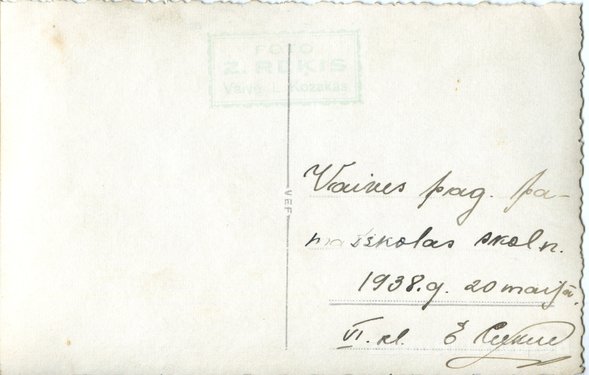 FOTO
Z. RUĶIS
Vaivē, L. Kozakās
VEF
Vaives pag. pa-
matskolas skoln.
1938.g. 20 maijā.
VI. kl. E